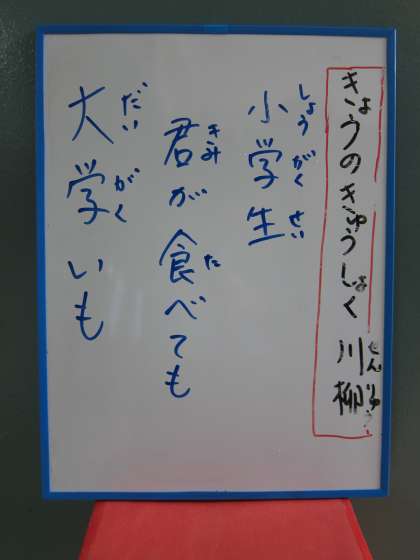 きょうのきゅうしょく 川柳
せんりゅう
小学生
しょうがくせい
君が食べても
きみ た
大学いも
だいがく